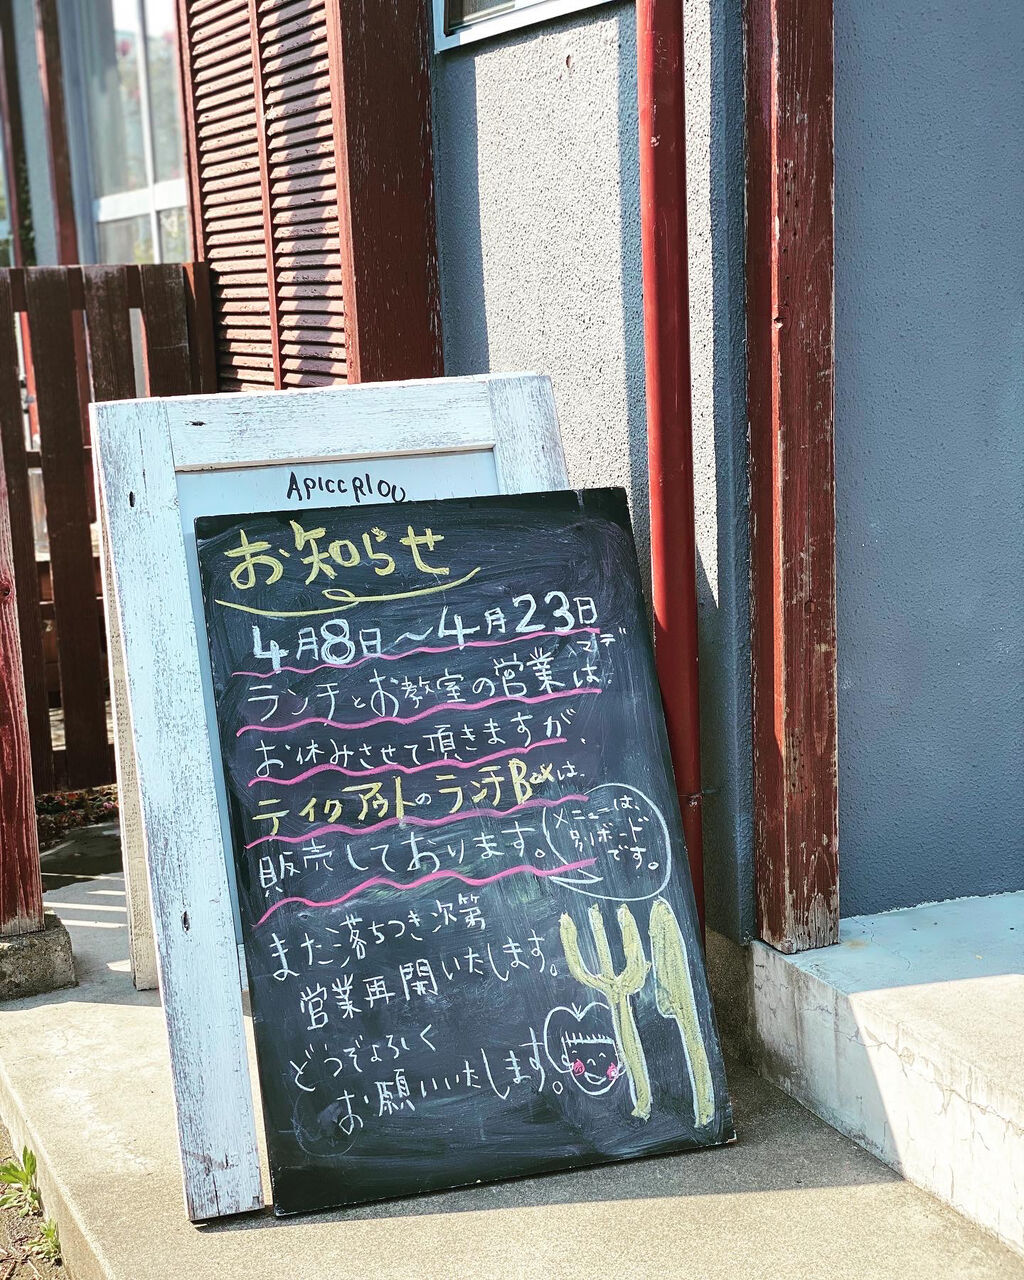 Apiccplou
お知らせ
4月8日〜4月23日
マデ
ランチとお教室の営業は、
お休みさせて頂きますが、
テイクアウトのランチBoxは、
販売しております。
メニューは、
別ボード
です。
また落ちつき次第
営業再開いたします。
どうぞよろしく
お願いいたします。